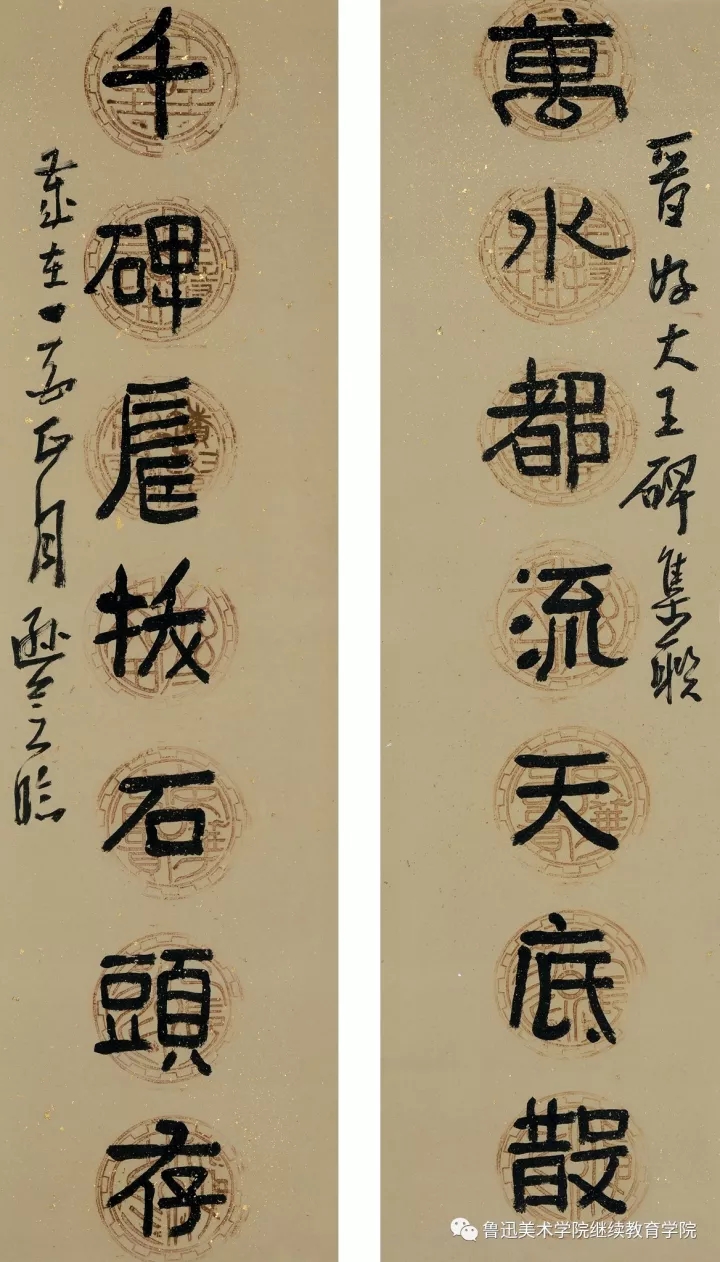 晉好大王碑集聯
萬水都流天底散
千碑拔石頭存
歲在丁酉正月之臨
鲁迅美术学院继续教育学院